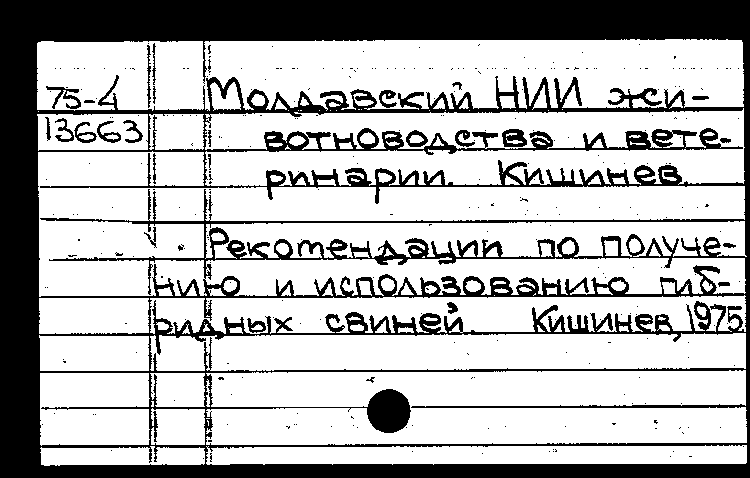 75-4 Молдавский НИИ жи-
13663 вотноводства и вете-
ринарии. Кишинев.
Рекомендации по получе-
нию и использованию гиб-
ридных свиней. Кишинев, 1975